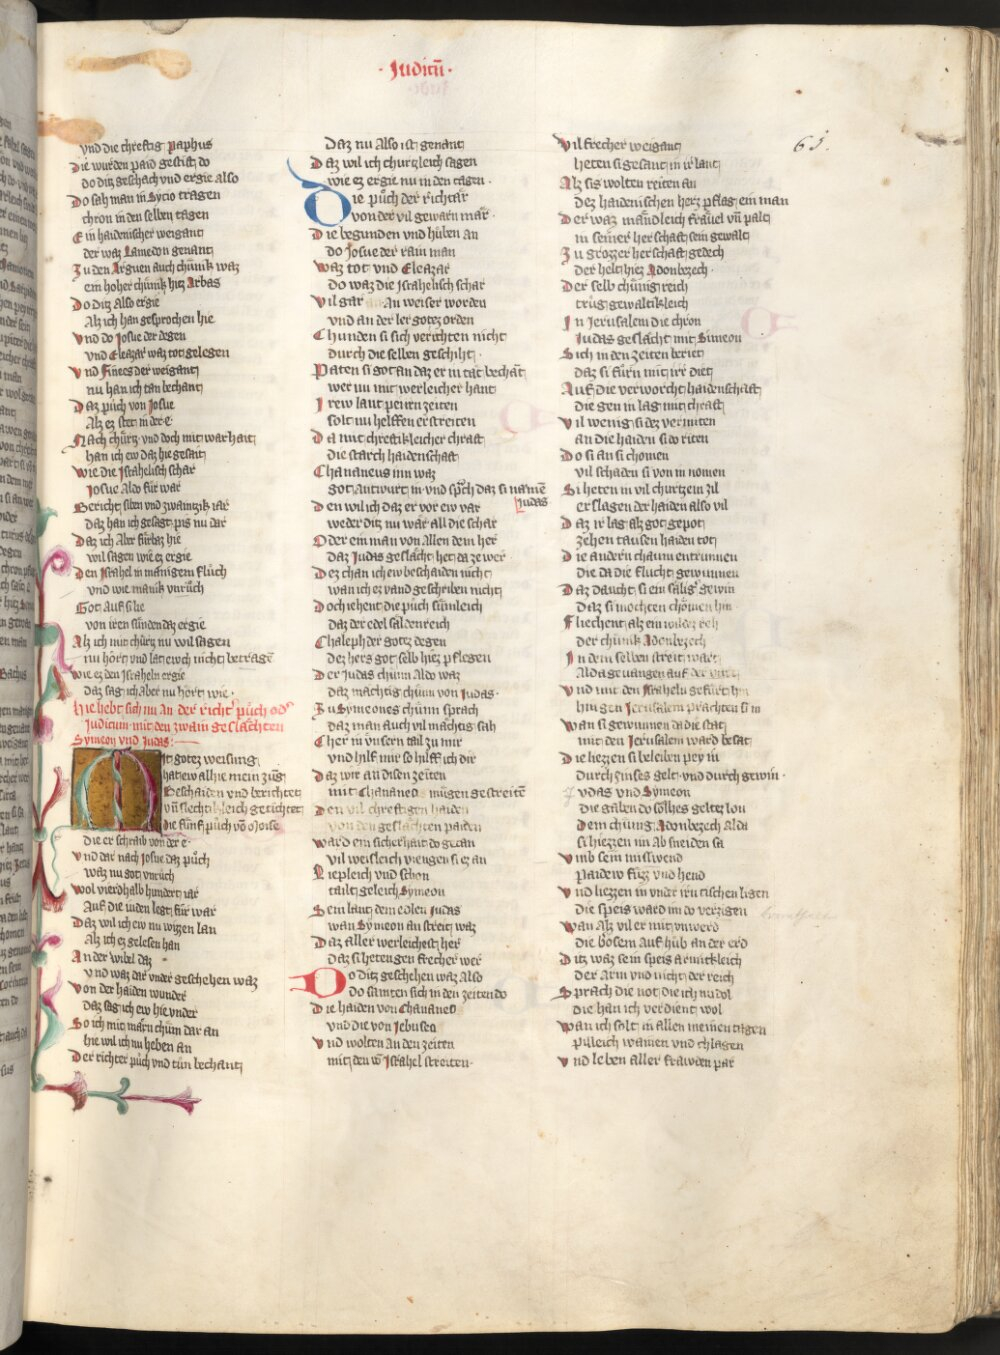 · Judicū ·
65.
vnd die chreftig paphus
Die wurden paid gestift do
do ditz geschach vnd ergie also
Do sah man in Sycio tragen
chron in den selben tagen
Ein haidenischer weigant
der waz Lamedon genant
Zu den Arguen auch chünik waz
ein hoher chünk hiez Arbas
Do ditz also ergie
Alz ich han gesprochen hie
Vnd do Josue der degen
vnd Eleazar waz tot gelegen
Vnd Finees der weigant
nu han ich tan bechant
Daz püch von Josue
Alz ez stet in der e·
Nach chürtz vnd doch mit warhait
han ich ew daz hie gesait
Wie die Israhelisch schar
Josue Aldo für war
Bericht siben vnd zwaintzik iar
daz han ich gesagt pis nu dar
Daz ich Aber fürbaz hie
wil sagen wie ez ergie
Den Israhel in manigem flüch
vnd wie manik vnrüch
Got Auf si lie
von iren sünden daz ergie
Alz ich mit chürtz nu wil sagen
nu hört vnd lat ewch nicht betragē
Wie ez den Israheln ergie
daz sag ich aber nu hört wie·
Hie hebt sich nu an der richt' püch od'
Judicum mit den zwain geslächten
Symeon vnd Judas·
Mit gotez weisung
hat ew alhie mein zūg
Beschaiden vnd berichtet
vn̄ slechtikleich getichtet
Die fünf püch vō Moise
die er schraib von der e·
Vnd dar nach Josue daz püch
waz nu got vnrüch
Wol vierdhalb hundert iar
Auf die iuden legt für war
Daz wil ich ew nu wizen lan
Alz ich ez gelesen han
An der wibel daz
vnd waz dar vnder geschehen waz
Von der haiden wunder
daz sag ich ew hie vnder
So ich mit märn chüm dar an
hie wil ich nu heben an
Der richter püch vnd tün bechant
Daz nu Also ist genant
Daz wil ich churtzleich sagen
wie ez ergie nu in den tagen·
Die püch der richtär
von der vil gewärn mär·
Die begunden vnd hüben an
do Josue der rain man
Waz tot vnd Eleazar
do waz die Israhelisch schar
Vil gar An weiser worden
vnd an der ler gotez orden
Chunden si sich verichten nicht
durch die selben geschiht·
Paten si got an daz er in tät bechāt
wer nu mit werleicher hant
Irew laut pei in zeiten
solt nu helffen erstreiten
Da mit chreftikleicher chraft
die starch haidenschaft
Chananeus inn waz
got antwurt in vnd sp̄ch daz si namē
Judas
Den wil ich daz er vor ew var
weder ditz nu wär all die schar
Oder ein man von Allen dem her
daz Judas geslächt het da ze wer
Dez chan ich ew beschaiden nicht
wan ich ez vand geschriben nicht
Doch iehent die püch sünleich
daz der edel saldenreich
Chaleph der gotez degen
dez hers got selb hiez pflegen
Der Judas chünn Aldo waz
daz mächtig chünn von Judas·
Zu Symeones chünn sprach
daz man auch vil mächtig sah
Cher in vnsern tail zu mir
vnd hilf mir so hilff ich dir
Daz wir an disen zeiten
mit Chananeo mügen gestreitē
Den vil chreftigen haiden
von den geslächten paiden
Ward ein sicherhait do getan
vil weisleich viengen si ez an
Riepleich vnd schon
tailt geleich Symeon
Sem laut dem edlen Judas
wan Symeon an streit waz
Daz aller werleichest her
daz si heten gen frecher wer
Do ditz geschehen waz Also
do samten sich in den zeiten do
Die haiden von Chananeo
vnd die von Jebuseo
Vnd wolten an den zeiten
mit den vō Israhel streiten·
Vil frecher weigant
heten si gesant in ir lant
Alz sis wolten reiten an
Dez haidenischen herz pflag ein man
Der waz mandleich fräuel vn̄ palt
in seiner herschaft sein gewalt
Zu grozzer herschaft gedech
der helt hiez Adonbezech·
Der selb chünig reich
trüg gewaltikleich
In Jerusalem die chron
Judas geslächt mit Simeon
Sich in den zeiten beriet
daz si fürn mit irr diet
Auf die verworcht haidenschaft
die gen in lag mit chraft
Vil wenig si dez vermiten
an die haiden si do riten
Do si an si chomen
vil schaden si von in nomen
Si heten in vil churtzem zil
erslagen der haiden also vil
Daz ir lag alz got gepot
zehen tausen haiden tot
Die andern chaum entrunnen
die da die flucht gewunnen
Daz daucht si ein sälig' gewin
daz si mochten chömen hin
Fliechent alz ein wildez reh
der chünik Adonbezech
In dem selben streit wart
Alda geuangen auf der vart
Vnd mit den Israheln gefürt hin
hin gen Jerusalem prachten si in
Wan si gewunnen da die stat
mit den Jerusalem ward besat
Die hiezzen si beleiben pey in
durch zinses gelt· vnd durch gewin·
Judas vnd Symeon
die gäben do sölhes geltez lon
Dem chünig Adonbezech alda
si hiezzen im Ab sneiden sa
Vmb sein missewend
paidew füzz vnd hend
Vnd liezzen in vnder iru tischen ligen
die speis ward im do verzigen
Wan alz vil er mit vnwerd
die bösem auf hüb an der erd
Ditz waz sein speis ärmikleich
der Arm vnd nicht der reich
Sprach die not die ich nu dol
die han ich verdient wol
Wan ich solt in allen meinen tagen
pilleich wainen vnd chlagen
Vnd leben aller frawden par